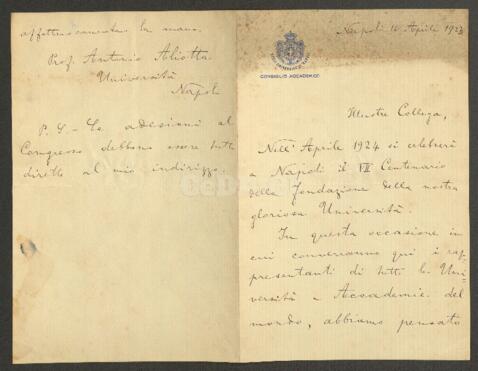 Napoli 16 Aprile 1923
CONSIGLIO ACCADEMICO
Illustre Collega,
Nell' Aprile 1924 si celebrerà
a Napoli il VII Centenario
della fondazione della nostra
gloriosa Università.
In questa occasione in
cui converranno qui i rap-
presentanti di tutte le Uni-
versità e Accademie del
mondo, abbiamo pensato
affettuosamente la mano.
Prof. Antonio Aliotta
Università
Napoli
P. S. - Le adesioni al
Congresso debbono essere tutte
dirette al mio indirizzo.